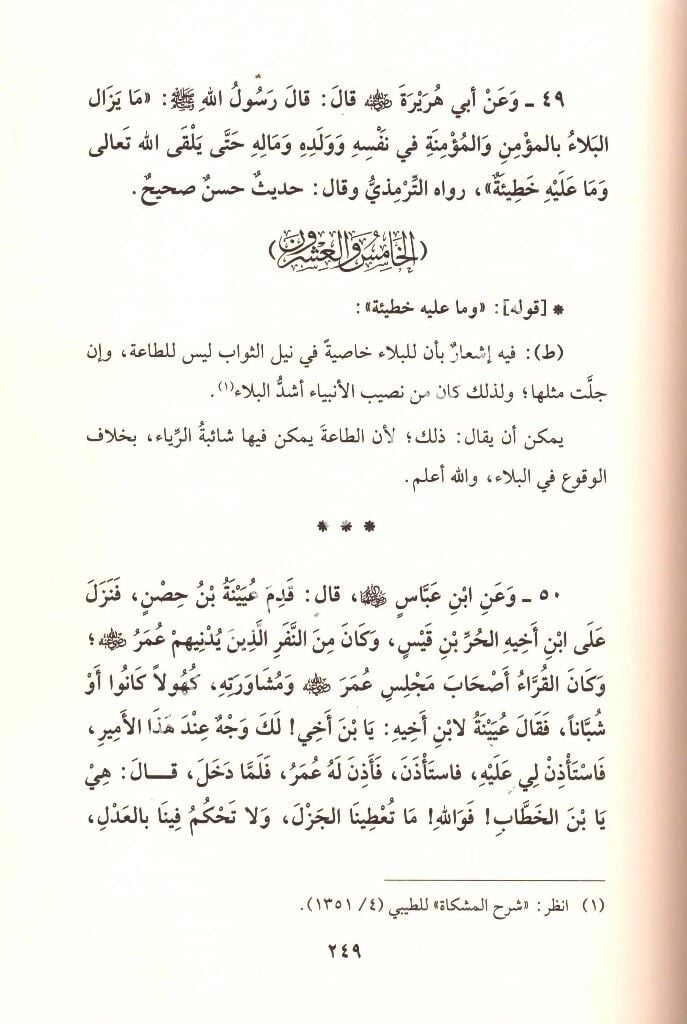 ٤٩ ـ وَعَنْ أبي هُرَيْرَةَ ﷺ قالَ: قالَ رَسُولُ اللهِ ﷺ: «مَا يَزَال
البَلاءُ بالمؤْمِنِ والمُؤْمِنَةِ في نَفْسِهِ وَوَلَدِهِ وَمَالِهِ حَتَّى يَلْقَى الله تَعالى
وَمَا عَلَيْهِ خَطِيئَةٌ»، رواه التِّرْمِذيُّ وقال: حديثٌ حسنٌ صحيحٌ.
(الخَامِسُ وَالْعِشْرُونَ)
* [قوله]: «وما عليه خطيئة»:
(ط): فيه إشعارٌ بأن للبلاء خاصيةً في نيل الثواب ليس للطاعة، وإن
جلَّت مثلها؛ ولذلك كان من نصيب الأنبياء أشدُّ البلاء(١).
يمكن أن يقال: ذلك؛ لأن الطاعةَ يمكن فيها شائبةُ الرِّياء، بخلاف
الوقوع في البلاء، والله أعلم.
* * *
٥٠ ـ وَعَنِ ابْنِ عَبَّاسٍ ﵄، قال: قَدِمَ عُيَيْنَةُ بْنُ حِصْنٍ، فَنَزَلَ
عَلَى ابْنِ أَخيهِ الحُرِّ بْنِ قَيْسٍ، وَكَانَ مِنَ النَّفَرِ الَّذِينَ يُدْنِيهمْ عُمَرُ ﵁؛
وَكَانَ القُرَّاءُ أَصْحَابَ مَجْلِسِ عُمَرَ ﵁ وَمُشَاوَرَتِهِ، كُهُولاً كَانُوا أَوْ
شُبَّاناً، فَقَالَ عُيَيْنَةُ لابْنِ أخيهِ: يَا بْنَ أَخي! لَكَ وَجْهٌ عِنْدَ هَذَا الأَمِيرِ،
فَاسْتَأْذِنْ لِي عَلَيْهِ، فاستَأْذَنَ، فَأَذِنَ لَهُ عُمَرُ، فَلَمَّا دَخَلَ، قَـالَ: هِيْ
يَا بْنَ الخَطَّابِ! فَوَاللهِ! مَا تُعْطِينَا الجَزْلَ، وَلا تَحْكُمُ فِينَا بالعَدْلِ،
(١) انظر: «شرح المشكاة» للطيبي (٤/ ١٣٥١).
٢٤٩